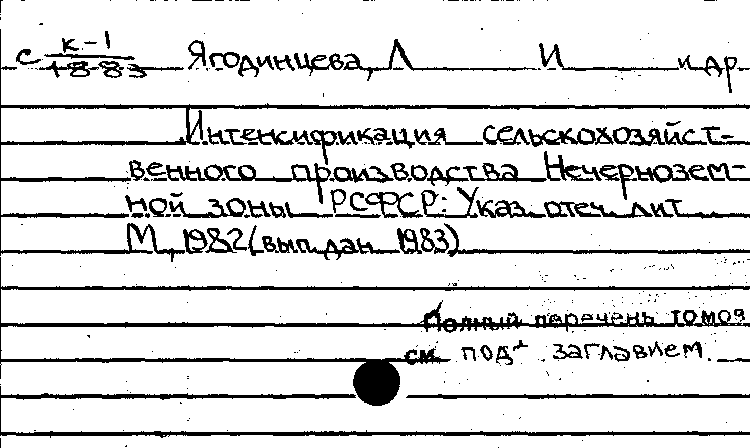 с К-1 Ягодинцева, Л И и др
1-8-83
Интенсификация сельскохозяйст-
венного производства Нечернозем-
ной зоны РСФСР: Указ. отеч. лит
М., 1982 (вып. дан 1983)
Полный перечень томов
см. под заглавием.